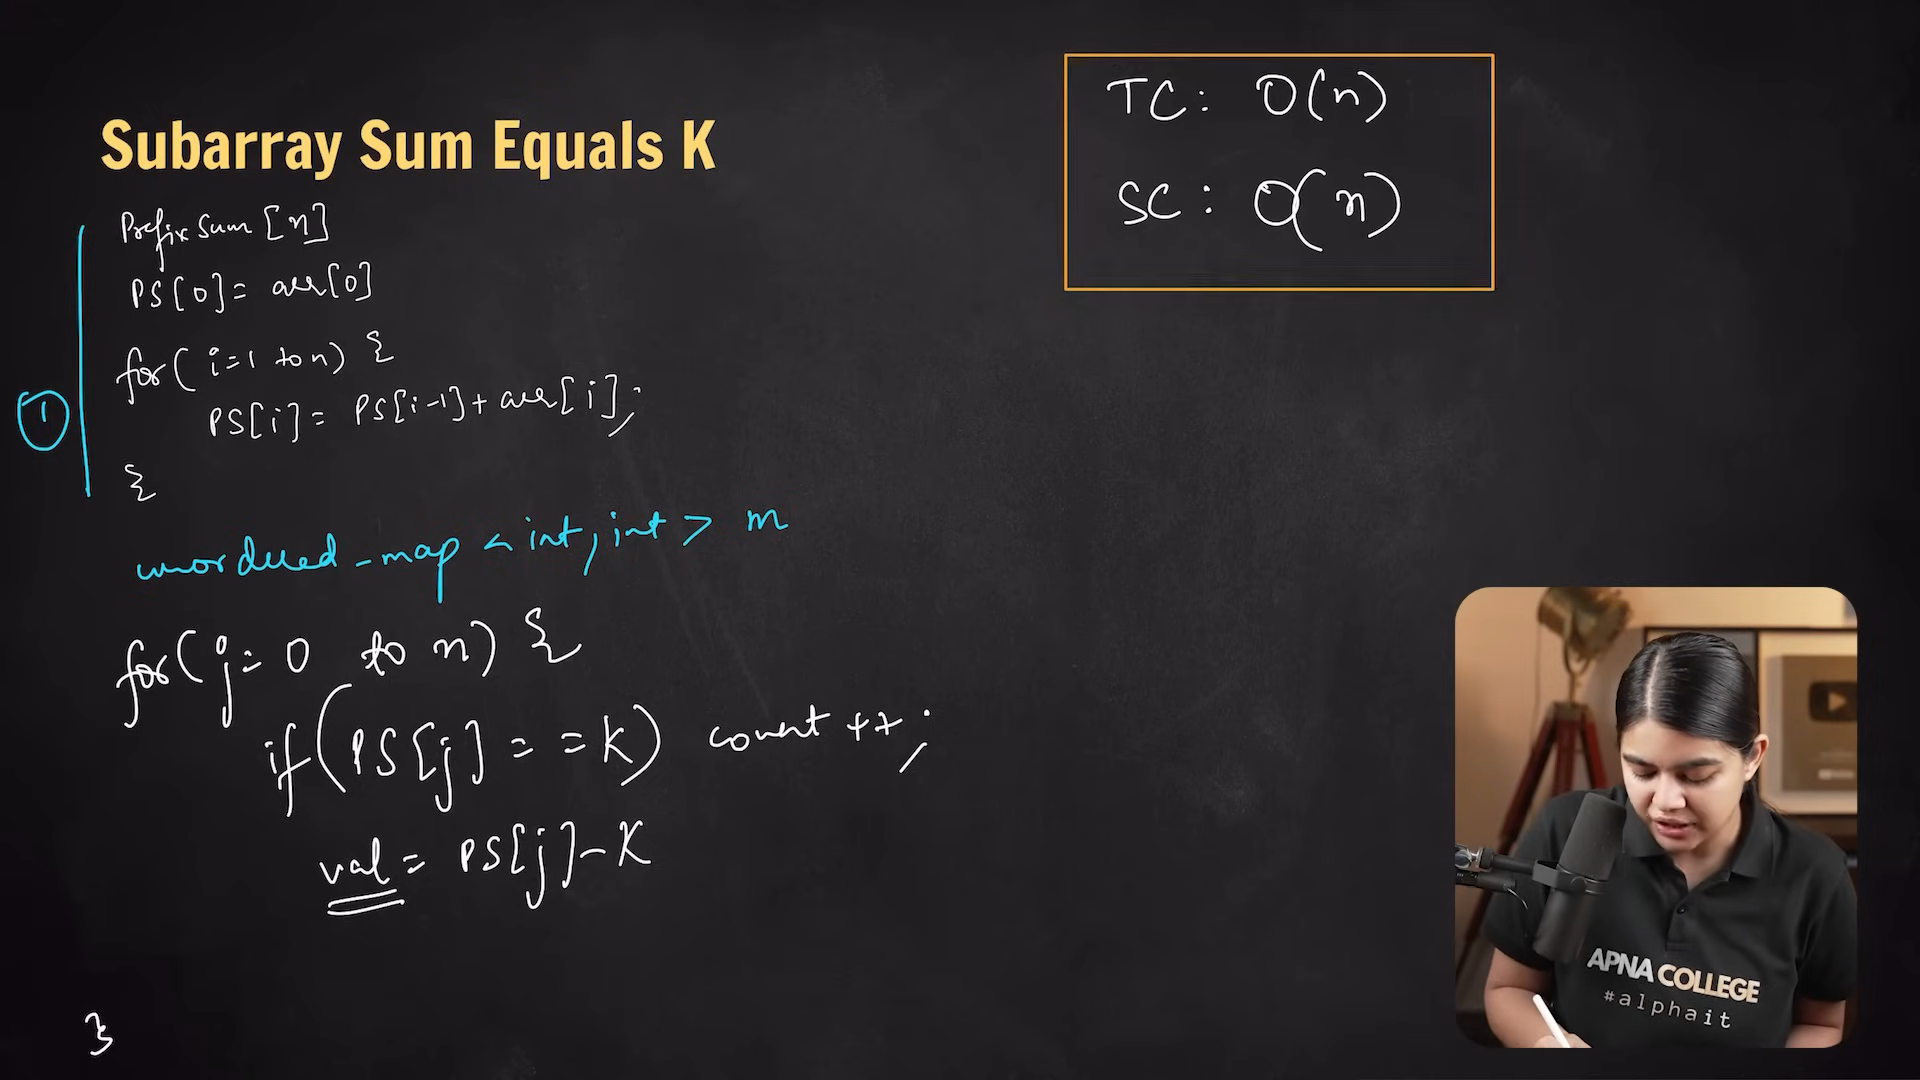 Subarray Sum Equals K
TC: O(n)
SC: O(n)
Prefix Sum [n]
PS[0]= arr[0]
for( i=1 to n) {
PS[i]= PS[i-1]+ arr[i];
}
1
unordered_map <int, int> m
for( j=0 to n) {
if(PS[j]==K) count ++;
val = PS[j]-K
}
APNA COLLEGE
#alphait